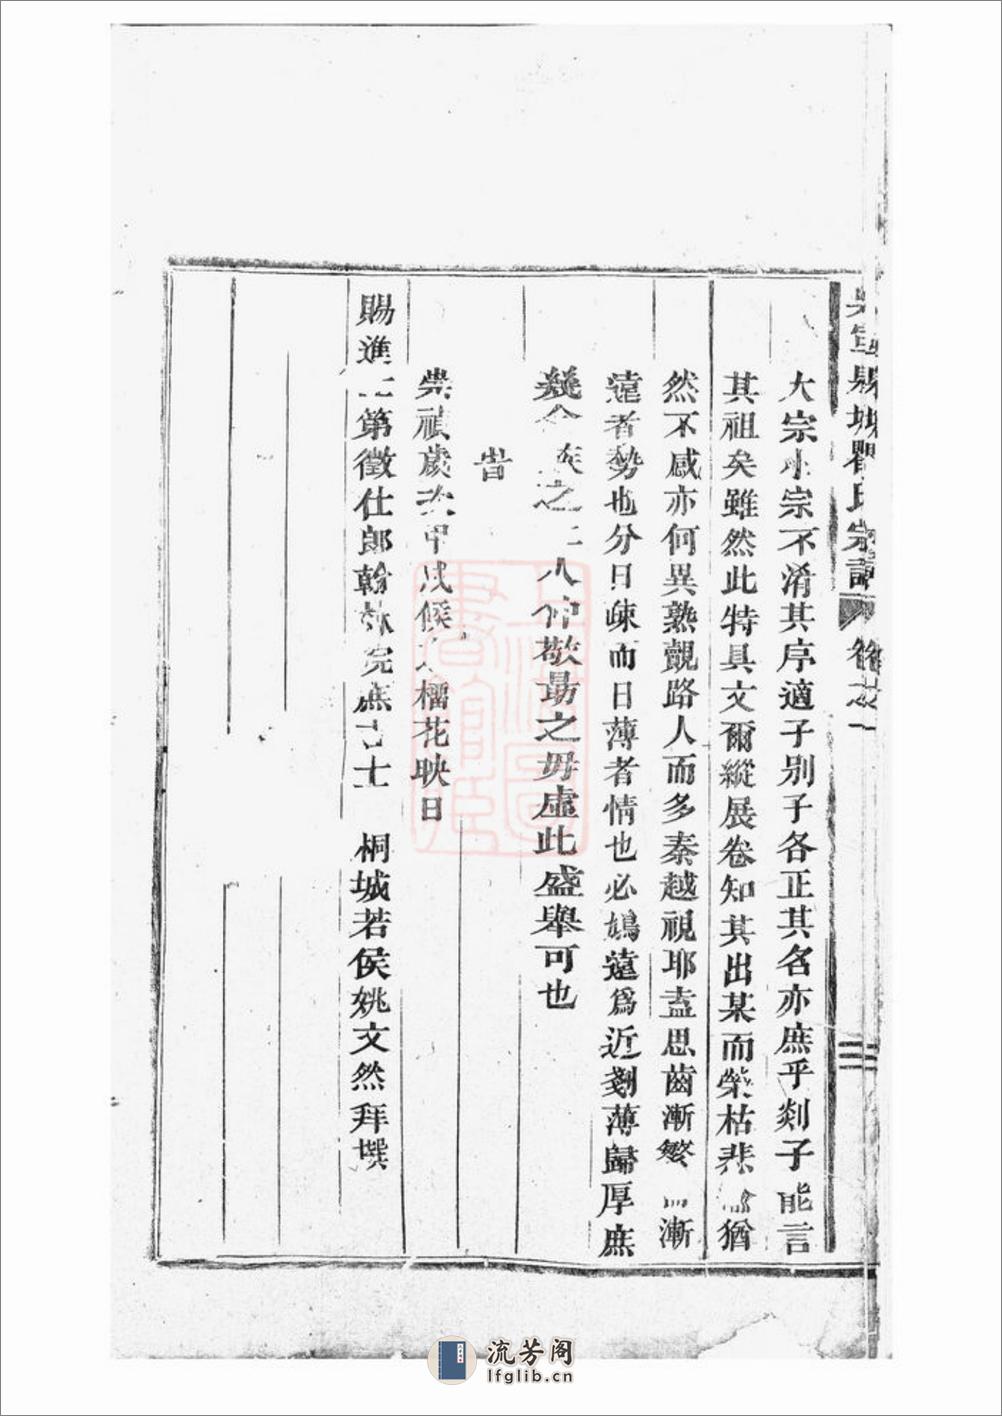 大宗小宗不淆其序適子别子各正其名亦庶乎剡子能言
其祖矣雖然此特具文爾縱展卷知其出某而榮枯悲 猶
然不感亦何異熟覿路人而多秦越視耶盖思齒漸繁 漸
遠者勢也分日疎而日薄者情也必鳩遠爲近剗薄歸厚庶
幾 族之 人 敬勗之毋虛此盛舉可也
旹
崇禎歲次甲戌候 榴花映日
賜進士第徵仕郎翰林院庶吉士 桐城若侯姚文然拜撰
縣城 氏宗譜 卷之一
三
流芳阁
lfglib.cn